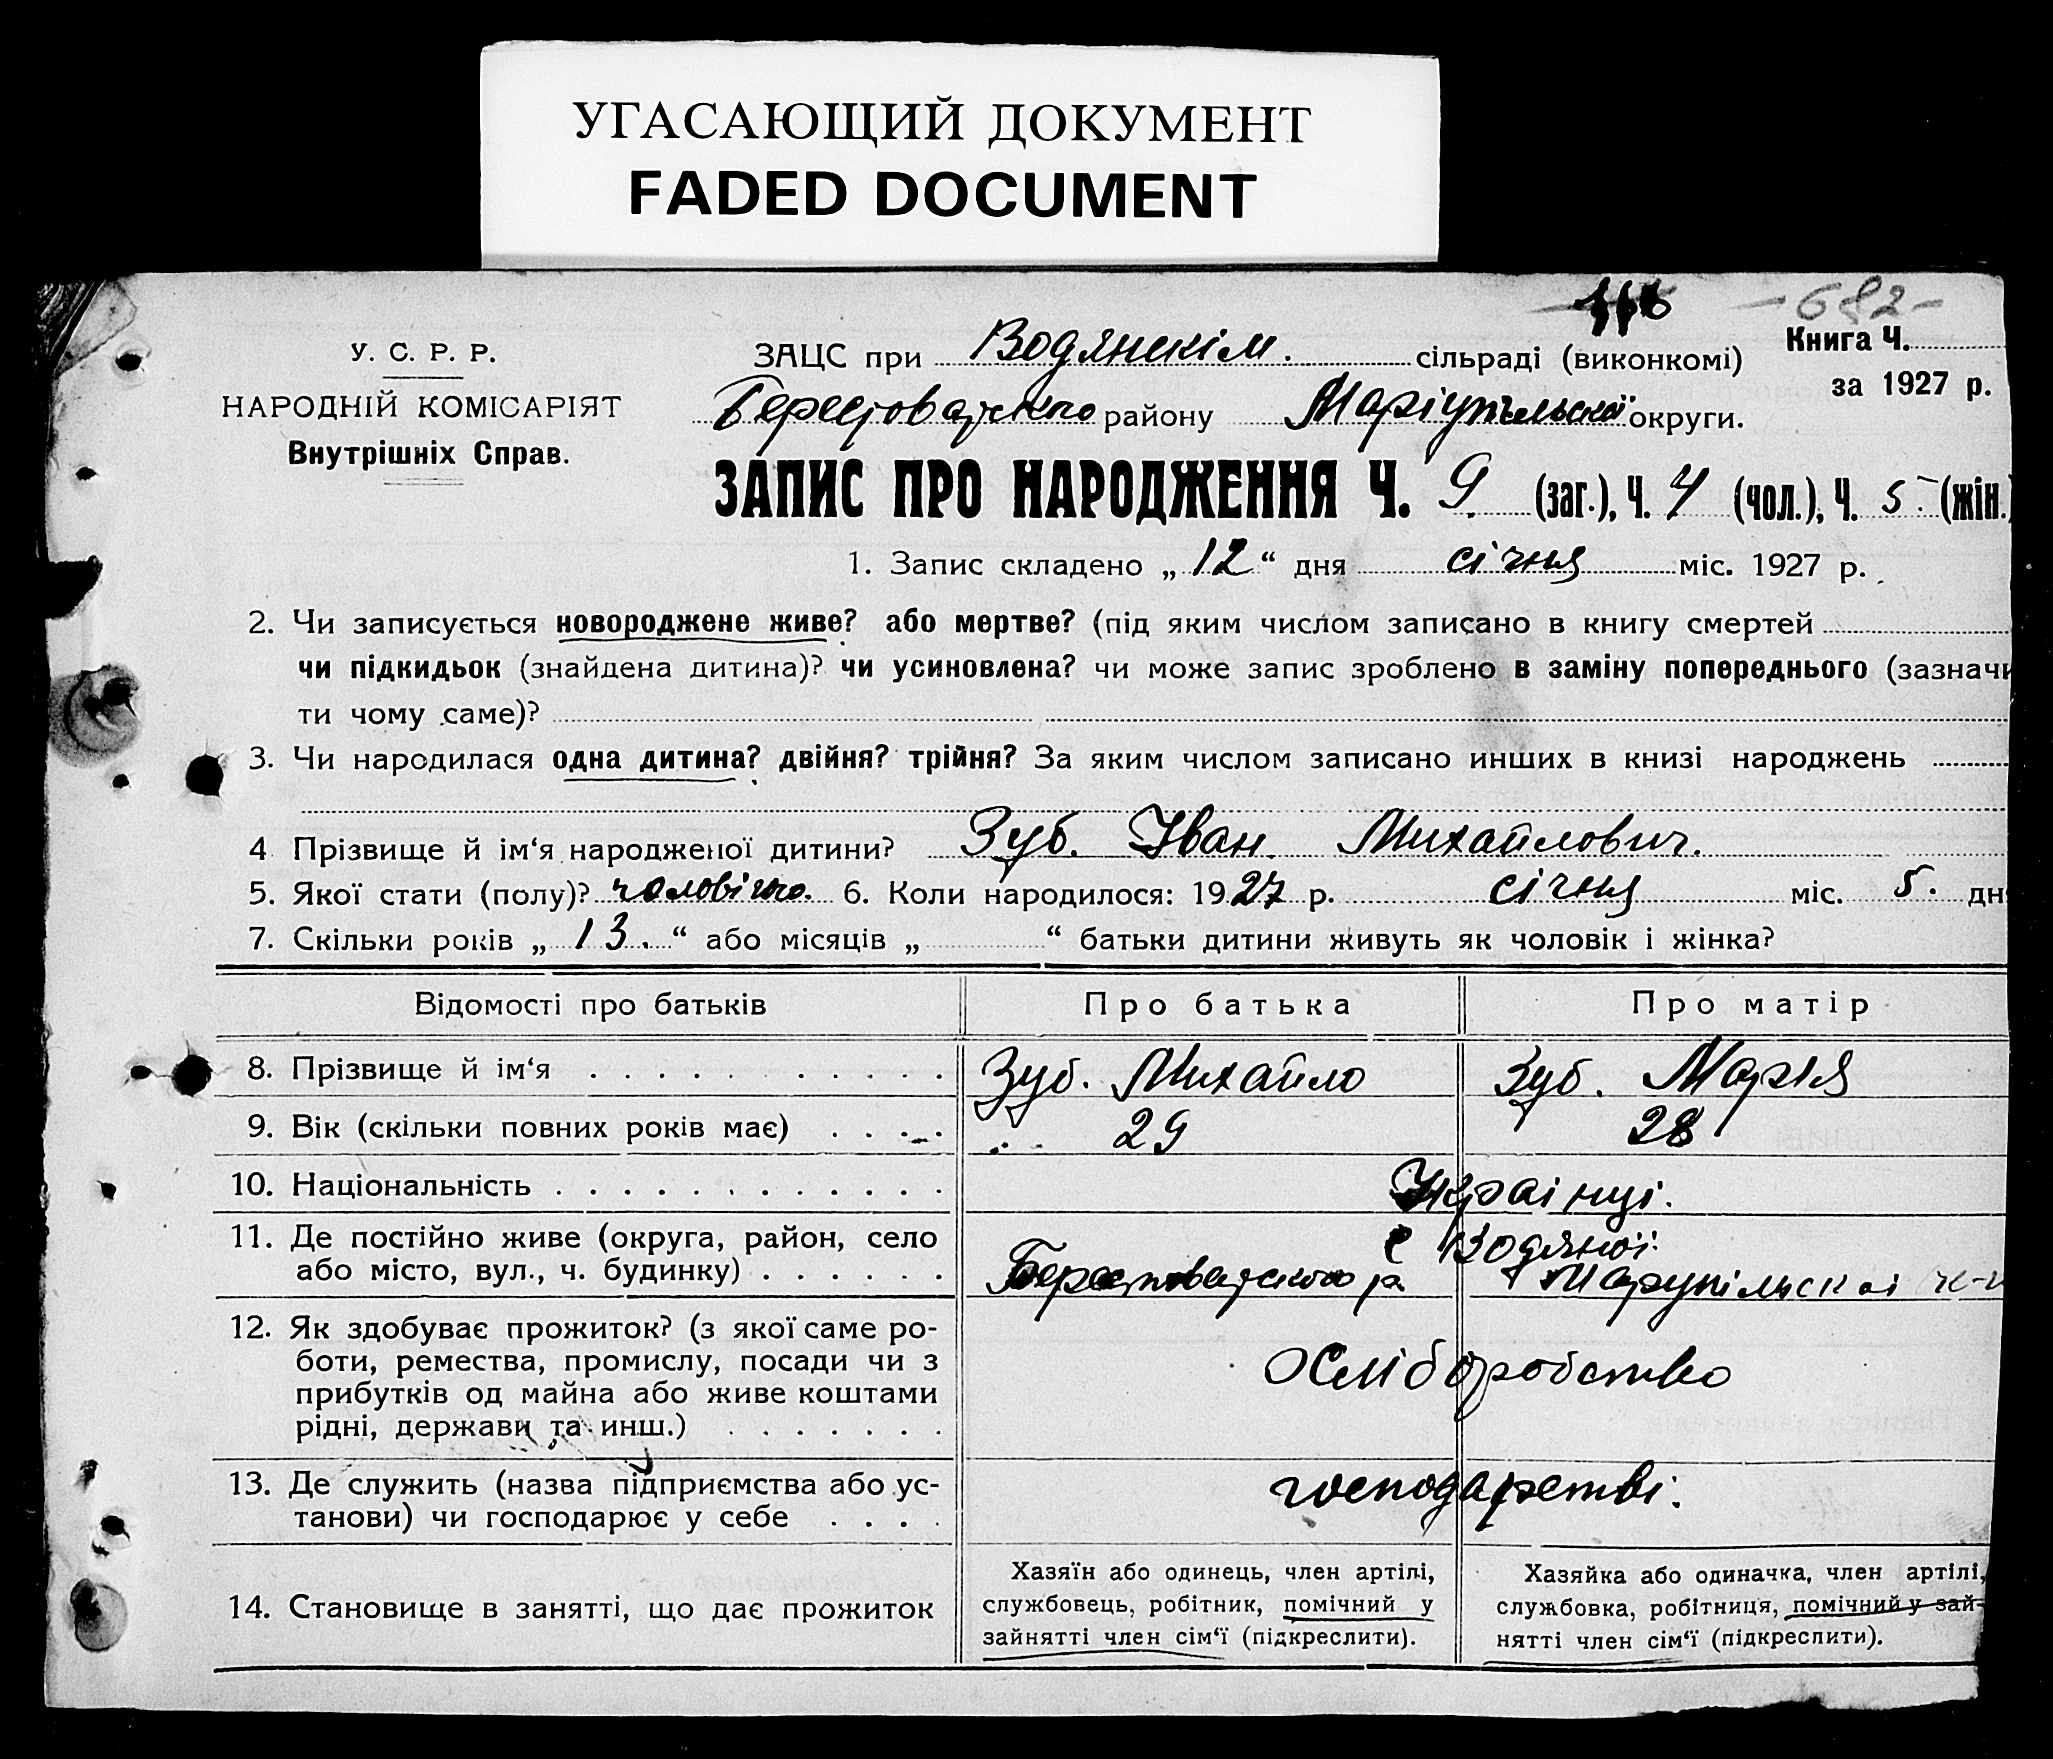 УГАСАЮЩИЙ ДОКУМЕНТ
FADED DOCUMENT
-682-
У. С. Р. Р.
НАРОДНІЙ КОМІСАРІЯТ
Внутрішніх Справ.
ЗАЦС при Водянскім. сільраді (виконкомі)
Книга Ч.
за 1927 р.
Берестоватского району Маріупільскої округи.
ЗАПИС ПРО НАРОДЖЕННЯ Ч. 9 (заг.), Ч. 4 (чол.), Ч. 5 (жін.)
1. Запис складено „12“ дня січня міс. 1927 р.
2. Чи записується новороджене живе? або мертве? (під яким числом записано в книгу смертей
чи підкидьок (знайдена дитина)? чи усиновлена? чи може запис зроблено в заміну попереднього (зазначи
ти чому саме)?
3. Чи народилася одна дитина? двійня? трійня? За яким числом записано инших в книзі народжень
4 Прізвище й ім‘я народженої дитини? Зуб. Іван. Михайлович.
5. Якої стати (полу)? чоловічого. 6. Коли народилося: 1927 р. січня міс. 5. дн
7. Скільки років „13.“ або місяців „ “ батьки дитини живуть як чоловік і жінка?
Відомості про батьків Про батька Про матір
8. Прізвище й ім‘я Зуб. Михайло Зуб. Марія
9. Вік (скільки повних років має) 29 28
10. Національність Українці.
11. Де постійно живе (округа, район, село с Водяної
або місто, вул., ч. будинку) Берестоватского ра Марупільскоі
12. Як здобуває прожиток? (з якої саме ро-
боти, ремества, промислу, посади чи з Хліборобство
прибутків од майна або живе коштами
рідні, держави та инш.)
13. Де служить (назва підприємства або ус- господарстві.
танови) чи господарює у себе
14. Становище в занятті, що дає прожиток
Хазяїн або одинець, член артілі,
службовець, робітник, помічний у
зайнятті член сім‘ї (підкреслити).
Хазяйка або одиначка, член артілі,
службовка, робітниця, помічний у зай-
нятті член сім‘ї (підкреслити).